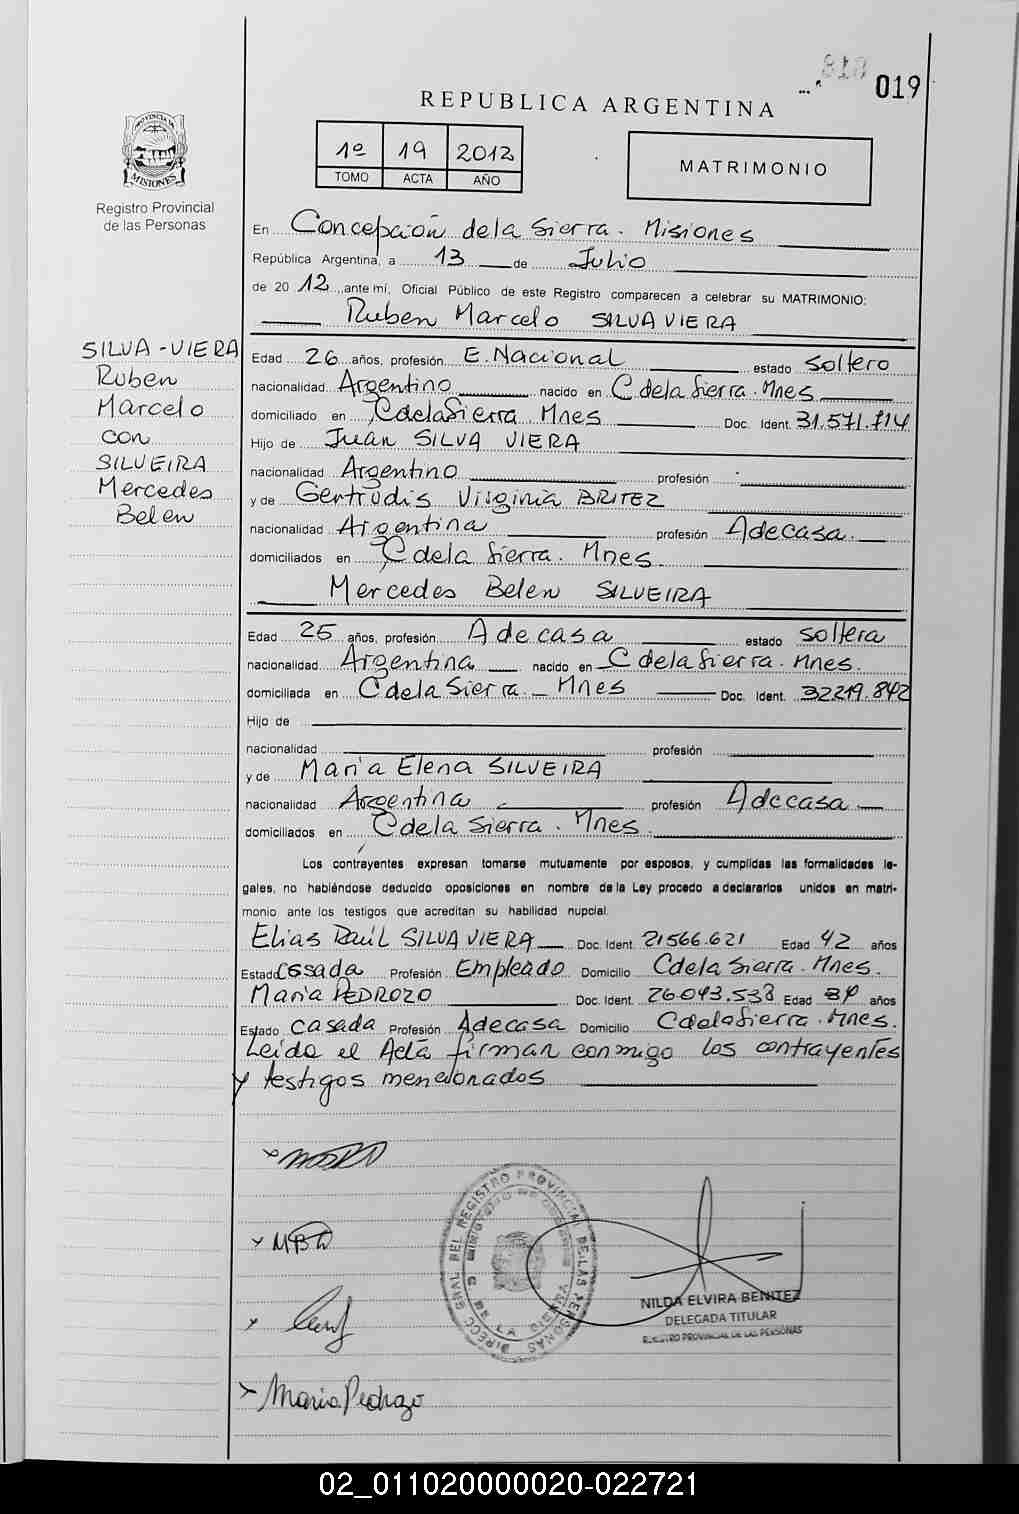 019
REPUBLICA ARGENTINA
1º 19 2012
TOMO ACTA AÑO
MATRIMONIO
PROVINCIA DE MISIONES
Registro Provincial
de las Personas
En Concepción de la Sierra. Misiones
República Argentina, a 13 de Julio
de 20 12 ante mí, Oficial Público de este Registro comparecen a celebrar su MATRIMONIO:
Ruben Marcelo SILVA VIERA
SILVA-VIERA
Ruben
Marcelo
con
SILVEIRA
Mercedes
Belen
Edad 26 años, profesión E. Nacional estado soltero
nacionalidad Argentino nacido en C de la Sierra. Mnes
domiciliado en C de la Sierra Mnes Doc. Ident. 31.571.714
Hijo de Juan SILVA VIERA
nacionalidad Argentino profesión
y de Gertrudis Virginia BRITEZ
nacionalidad Argentina profesión Adecasa.
domiciliados en C de la Sierra. Mnes.
Mercedes Belen SILVEIRA
Edad 25 años, profesión Adecasa estado soltera
nacionalidad Argentina nacido en C de la Sierra. Mnes.
domiciliada en C de la Sierra. Mnes Doc. Ident. 32219.842
Hijo de
nacionalidad profesión
y de Maria Elena SILVEIRA
nacionalidad Argentina profesión Adecasa
domiciliados en C de la Sierra. Mnes.
Los contrayentes expresan tomarse mutuamente por esposos, y cumplidas las formalidades le-
gales, no habiéndose deducido oposiciones en nombre de la Ley procedo a declararlos unidos en matri-
monio ante los testigos que acreditan su habilidad nupcial.
Elias Raúl SILVA VIERA Doc. Ident. 21566.621 Edad 42 años
Estado Casada Profesión Empleado Domicilio C de la Sierra. Mnes.
Maria PEDROZO Doc. Ident. 26.043.538 Edad años
Estado casada Profesión Adecasa Domicilio C de la Sierra. Mnes.
Leida el Acta firman conmigo los contrayentes
y testigos mencionados
DIRECC. GRAL DEL REGISTRO PROVINCIAL DE LAS PERSONAS
NILDA ELVIRA BENITEZ
DELEGADA TITULAR
REGISTRO PROVINCIAL DE LAS PERSONAS
Maria Pedrozo
02_011020000020-022721